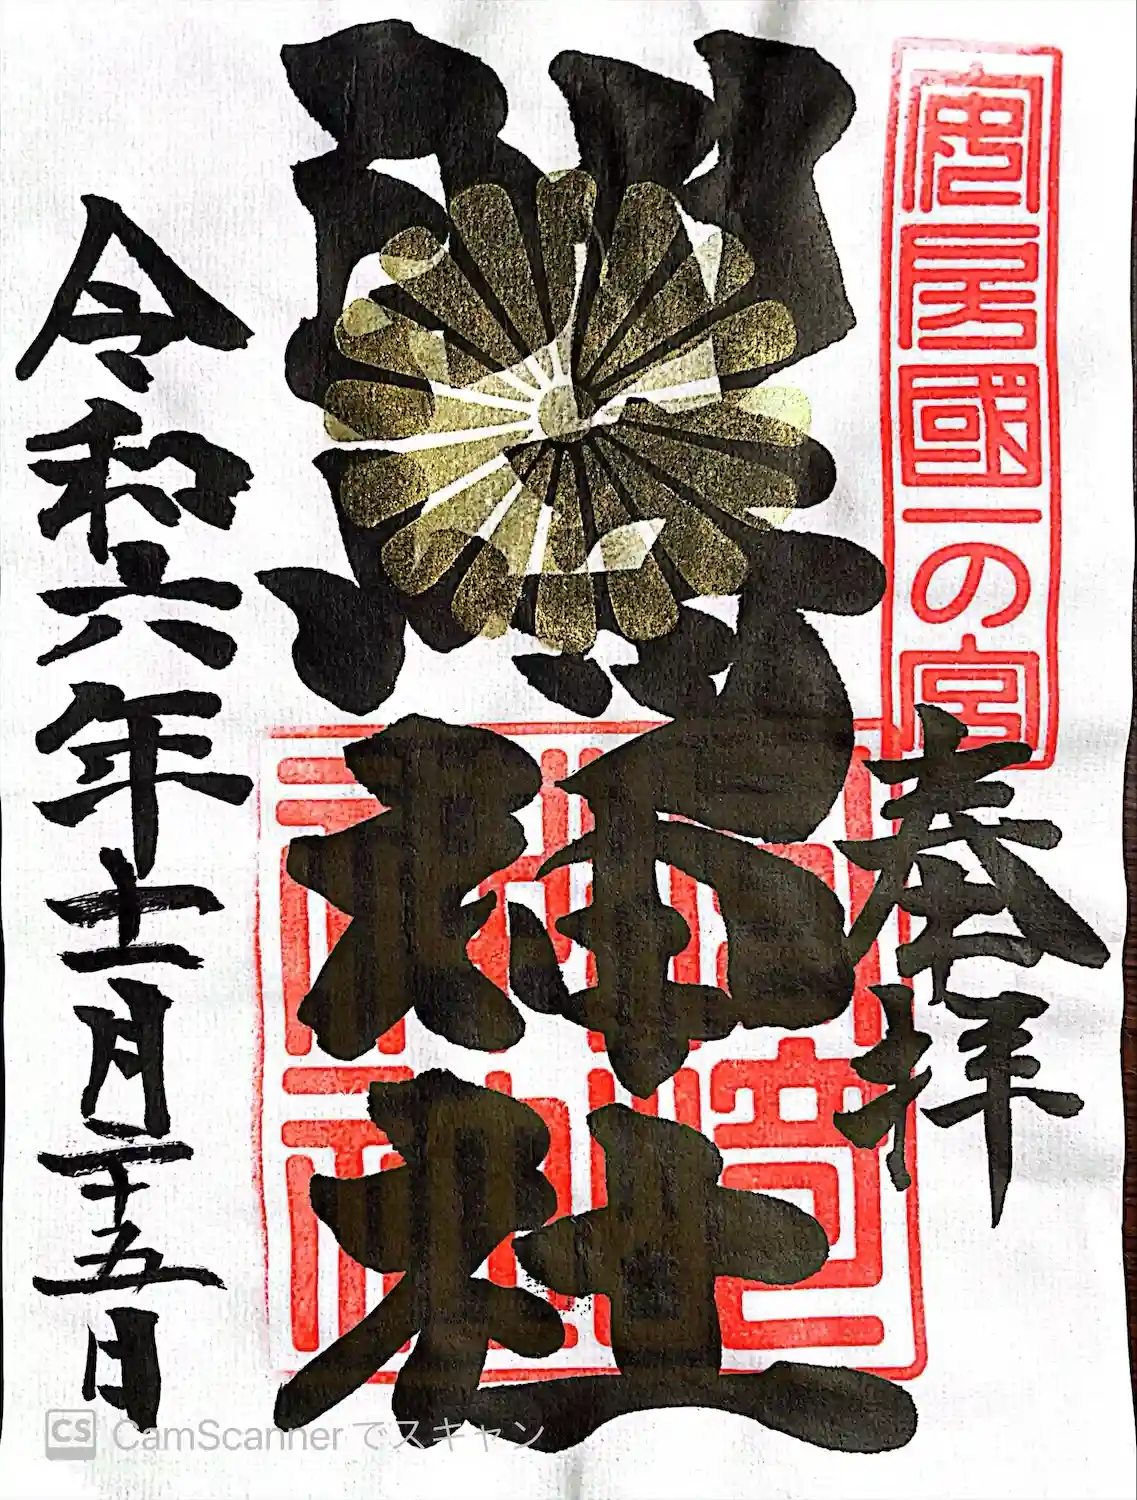 安房國一の宮
奉拝
神社
令和六年十一月二十五日
CS CamScanner でスキャン